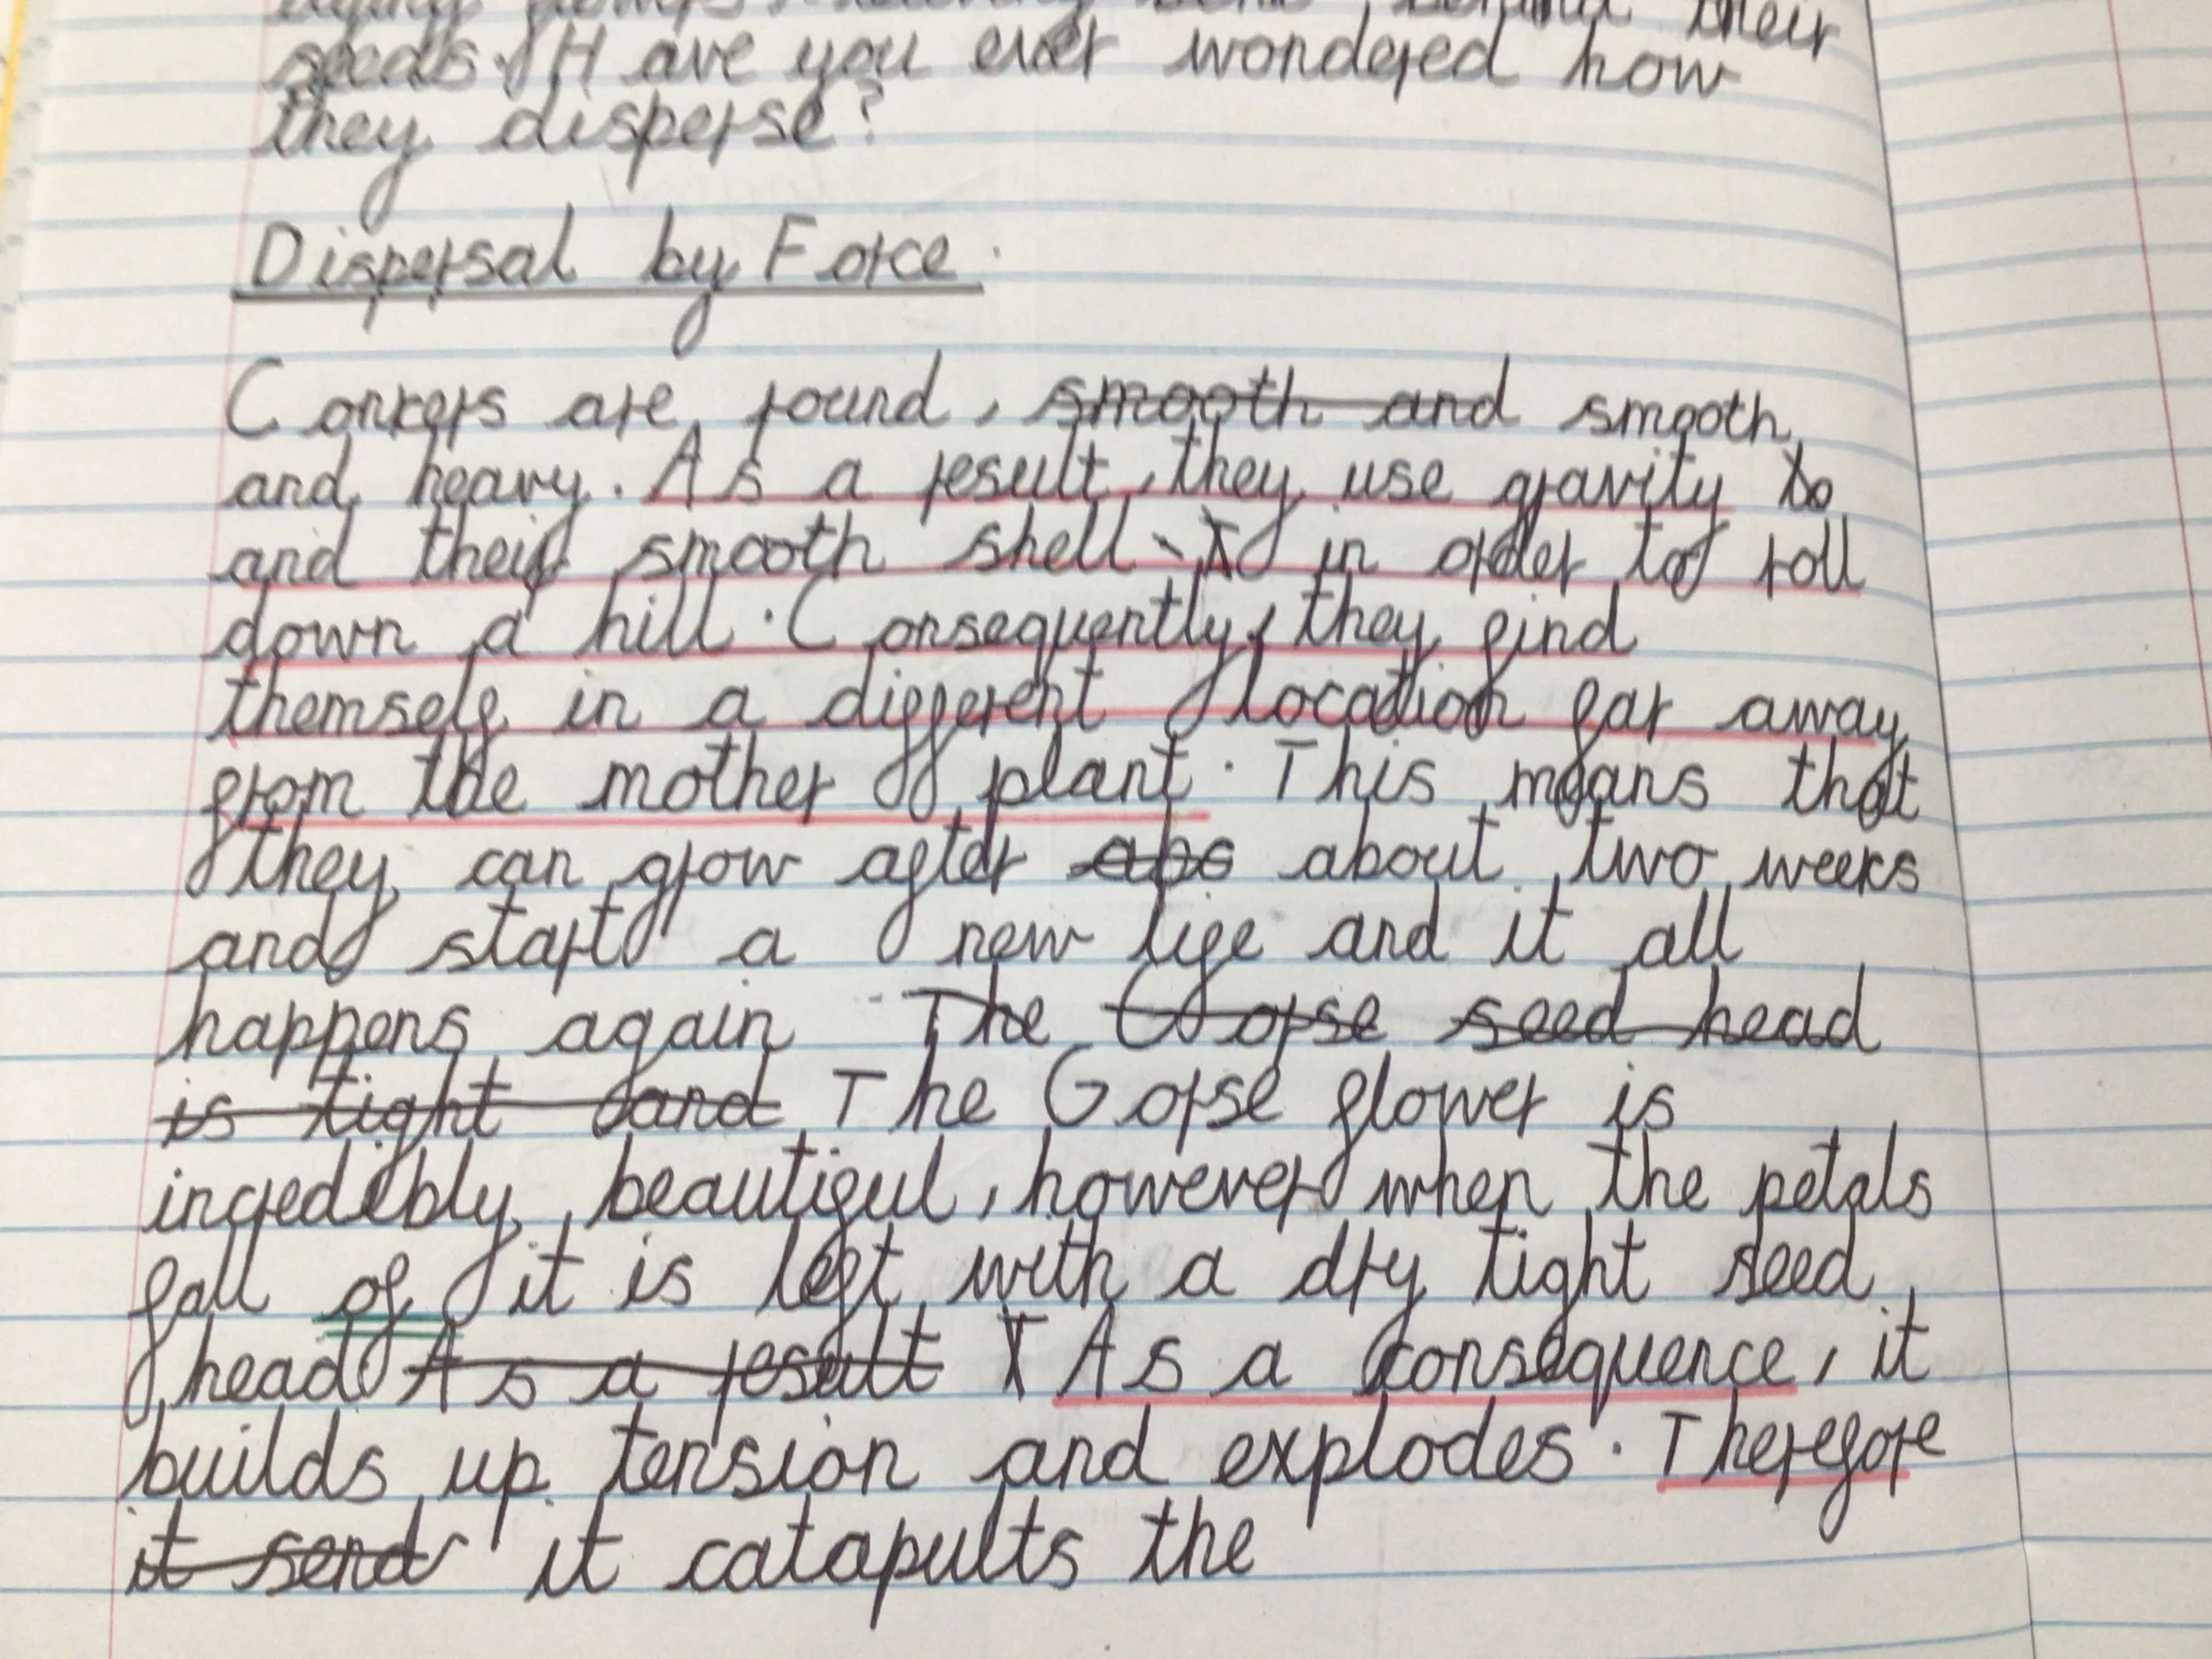 their
seeds. Have you ever wondered how
they disperse?
Dispersal by Force.
Conkers are round, smooth and smooth
and heavy. As a result, they use gravity to
and their smooth shell in order to roll
down a hill. Consequently, they find
themself in a different location far away
from the mother plant. This means that
they can grow after abo about two weeks
and start a new life and it all
happens again The Gorse seed head
is tight and The Gorse flower is
incredebly beautiful, however when the petals
fall of it is left with a dry tight seed
head As a result T As a consequence, it
builds up tension and explodes. Therefore
it send it catapults the